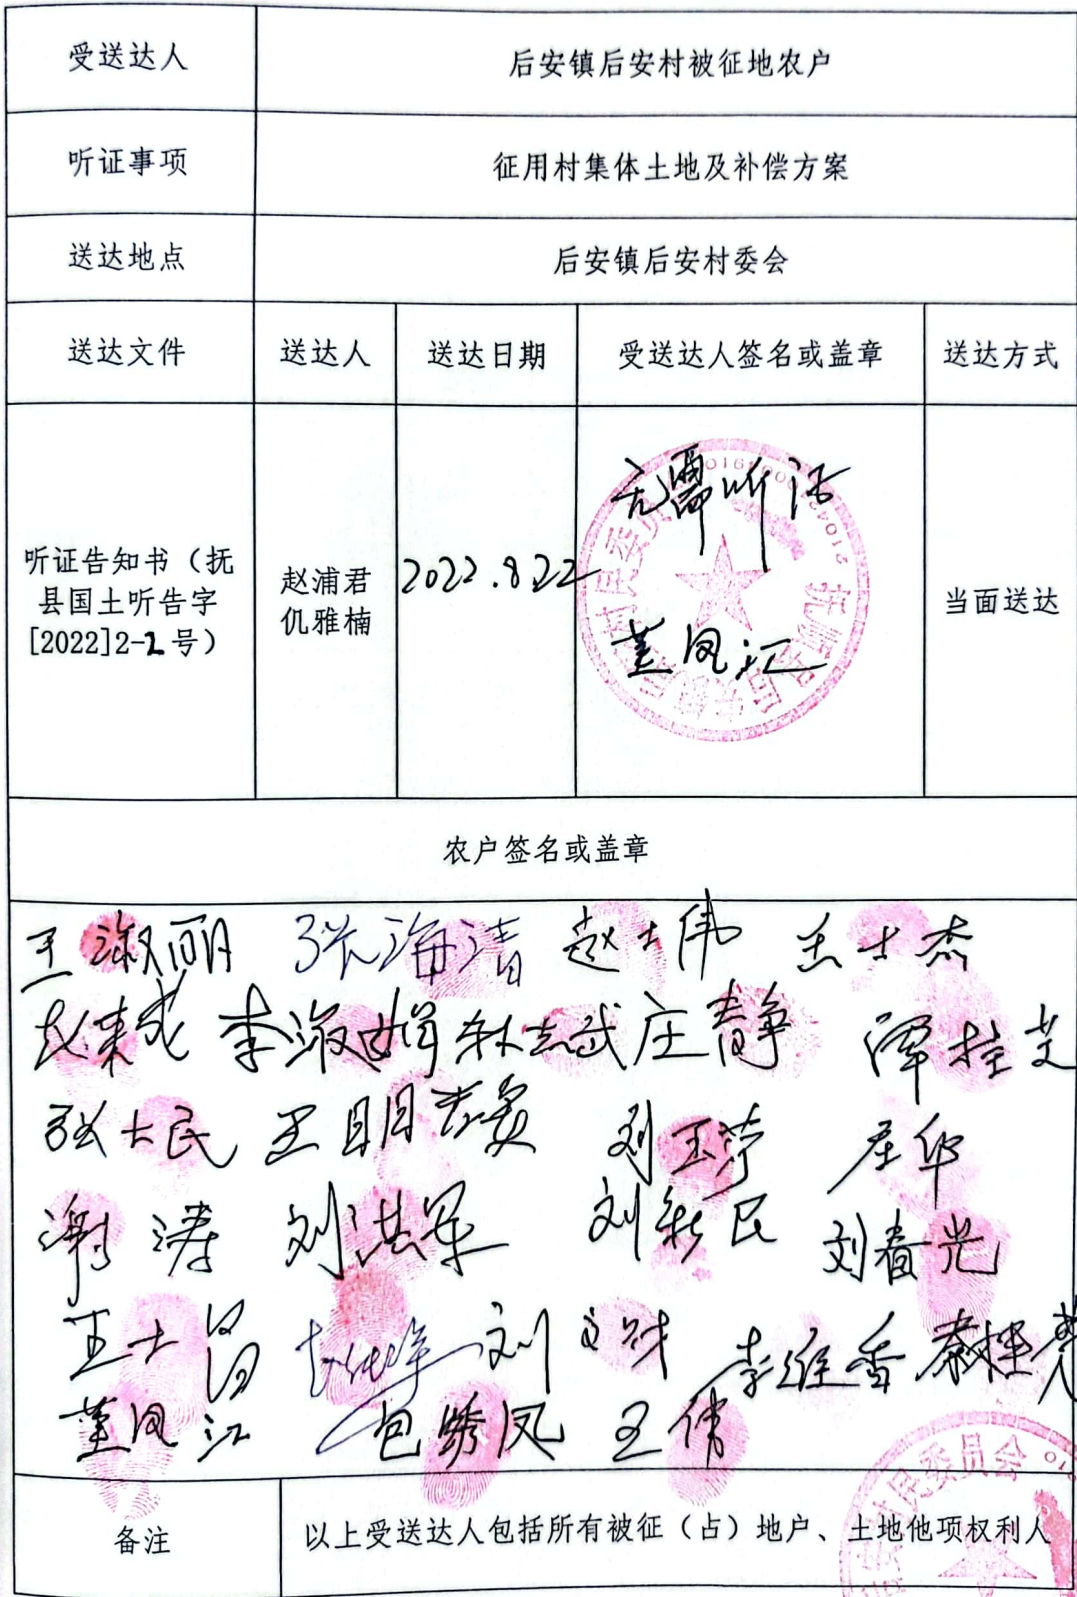 受送达人 后安镇后安村被征地农户
听证事项 征用村集体土地及补偿方案
送达地点 后安镇后安村委会
送达文件 送达人 送达日期 受送达人签名或盖章 送达方式
听证告知书（抚
县国土听告字
[2022]2-2号）
赵浦君
仉雅楠
2022.8.22
无需听证
董凤江
当面送达
农户签名或盖章
王淑丽 张海清 赵士伟 王士杰
李淑娟 林志武 庄静 谭桂芝
张士民 王明 刘玉萍
谢涛 刘洪军 刘新民 刘春光
王士 刘文 李维香 秦桂
董凤江 包绣凤 王倩
备注 以上受送达人包括所有被征（占）地户、土地他项权利人
村民委员会